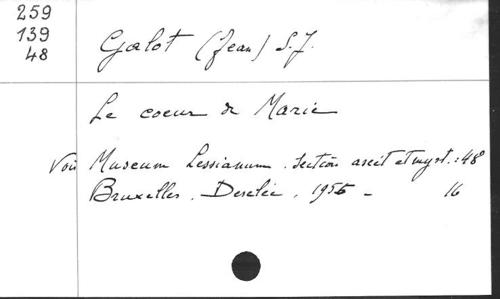 259
139
48
Galot (Jean) S.J.
Le coeur de Marie
Voir Museum Lessianum. Section ascét et myst.: 48
Bruxelles. Desclée. 1955 - 16